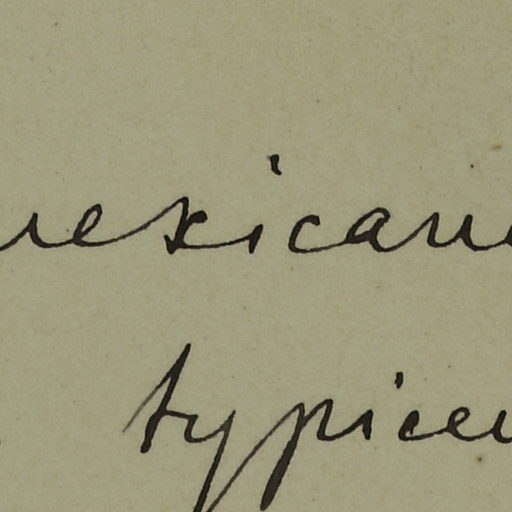 mexicanu
typicu